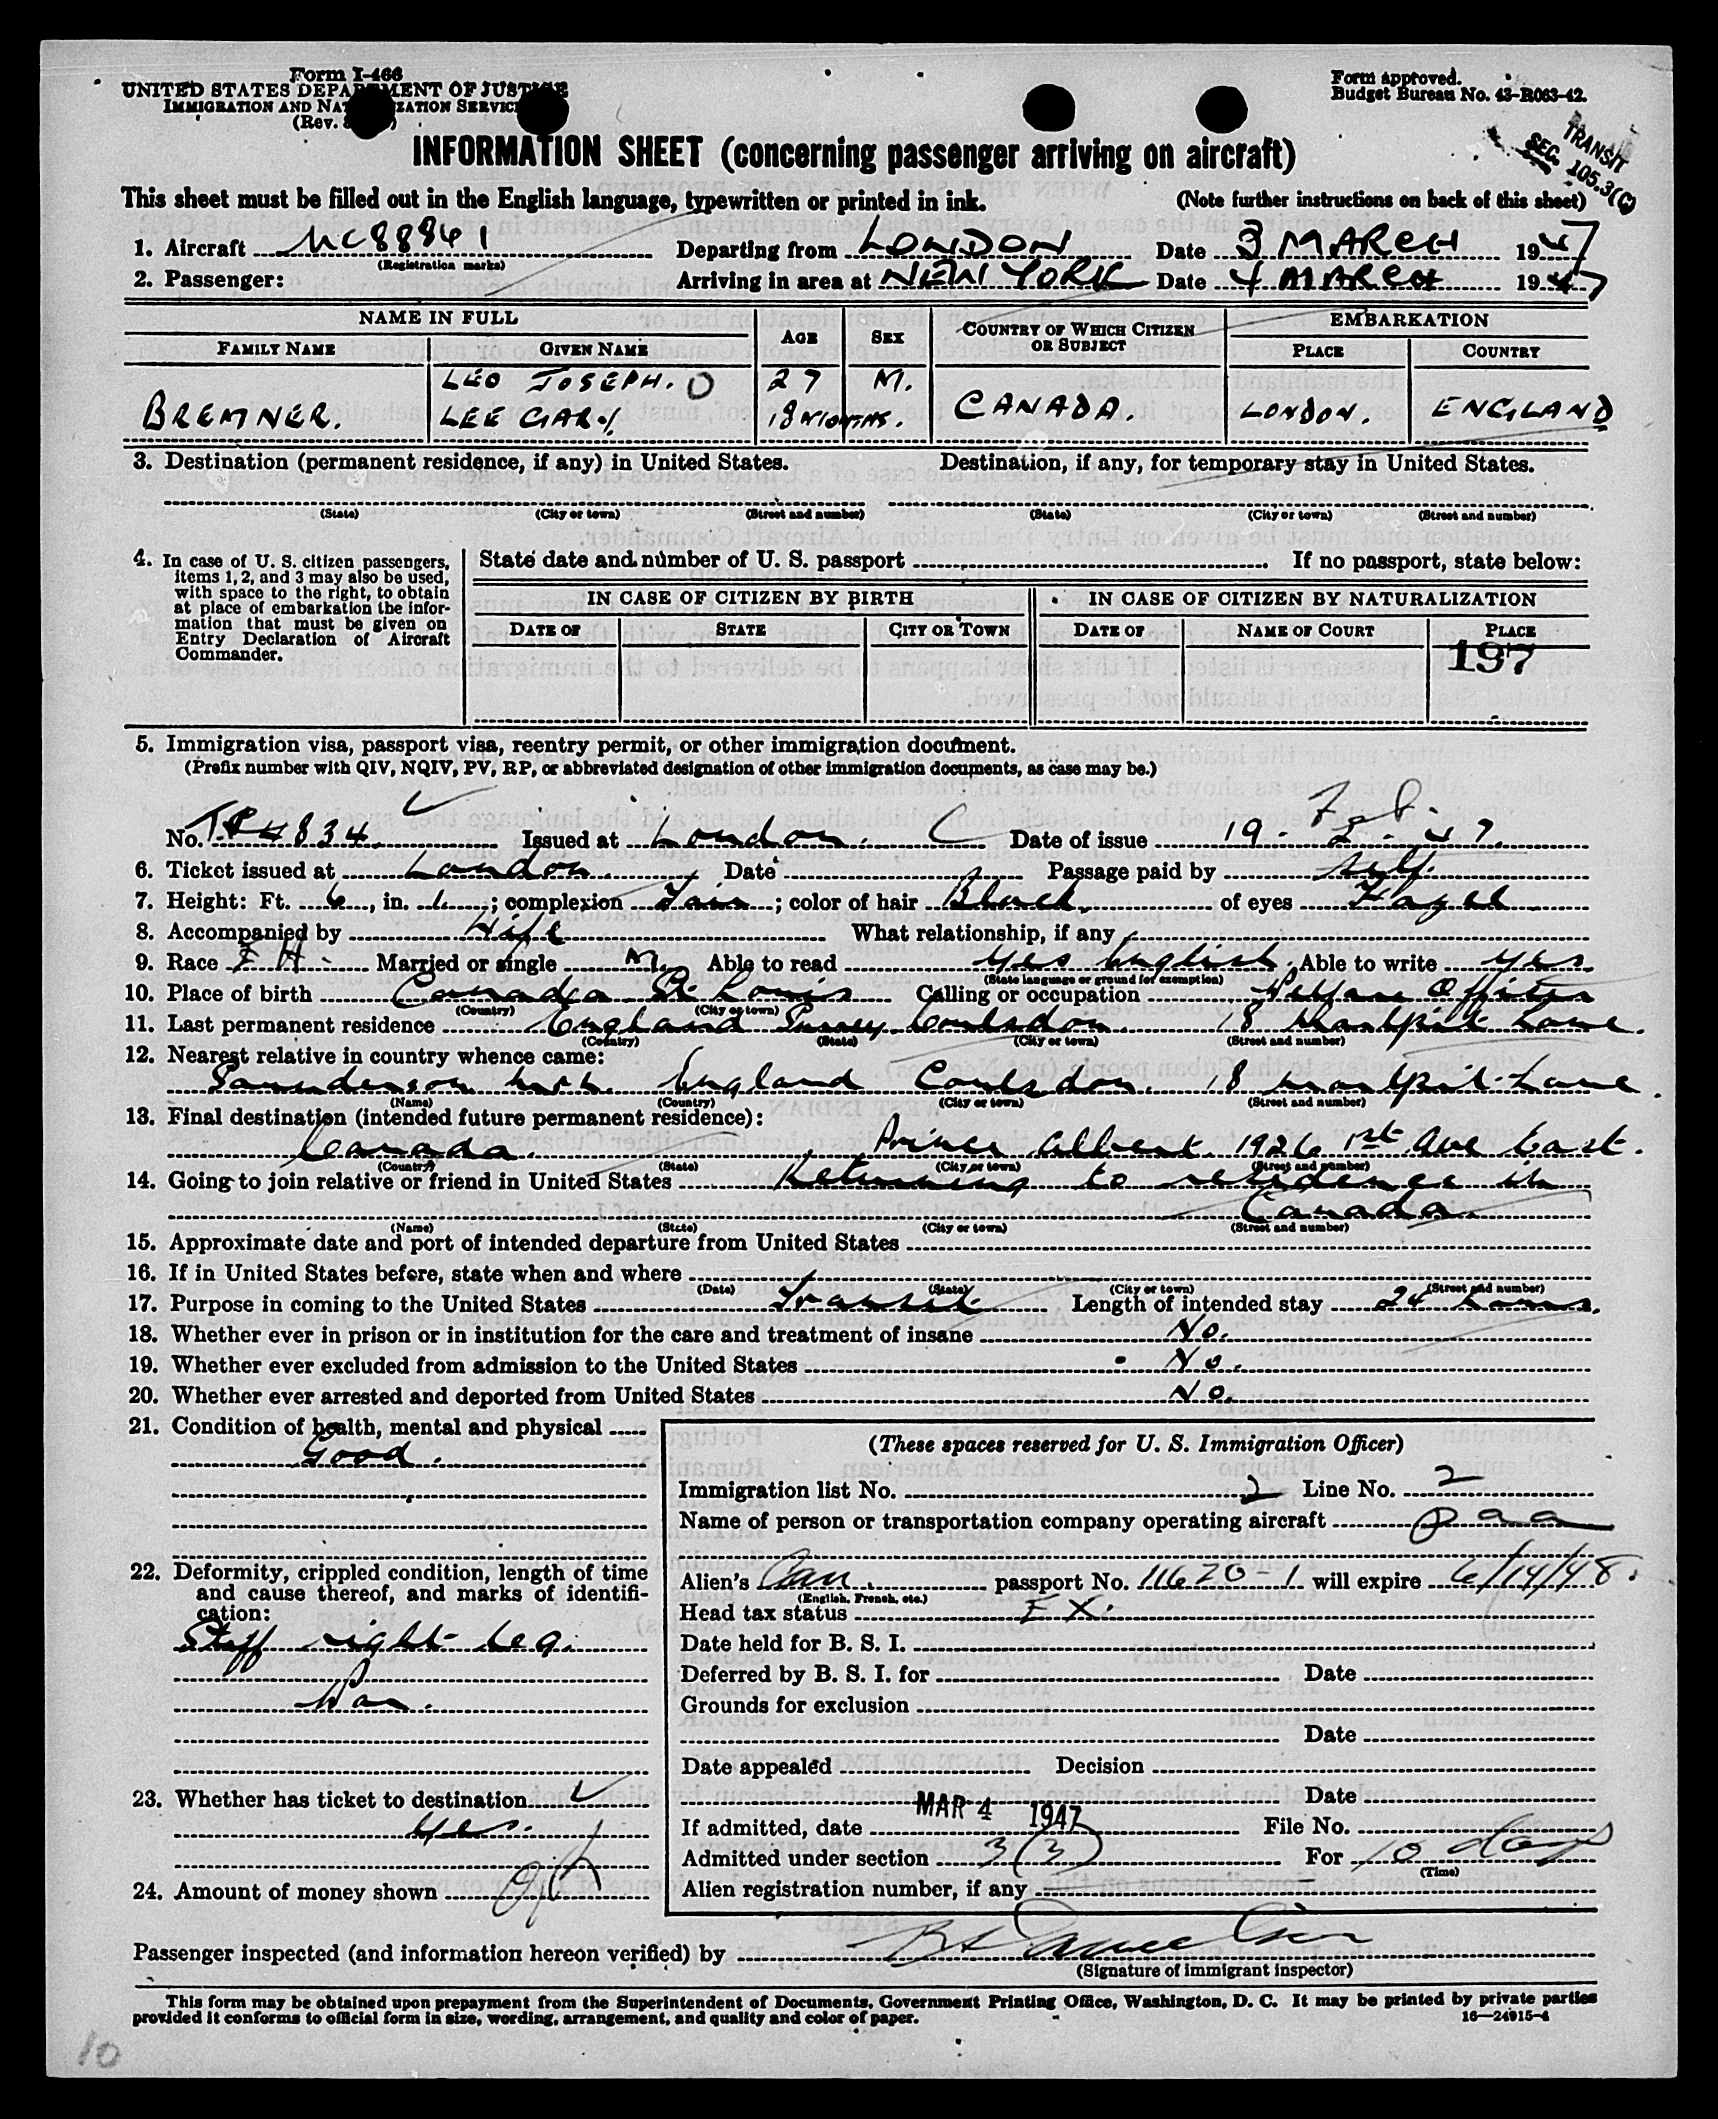 Form I-466
UNITED STATES DEPARTMENT OF JUSTICE
IMMIGRATION AND NATURALIZATION SERVICE
(Rev.
Form approved.
Budget Bureau No. 43-R063-42.
TRANSIT
SEC. 105.3(C)
INFORMATION SHEET (concerning passenger arriving on aircraft)
This sheet must be filled out in the English language, typewritten or printed in ink. (Note further instructions on back of this sheet)
1. Aircraft NC88861 Departing from LONDON Date 3 MARCH 1947
(Registration marks)
2. Passenger: Arriving in area at NEW YORK Date 4 MARCH 1947
NAME IN FULL AGE SEX COUNTRY OF WHICH CITIZEN OR SUBJECT EMBARKATION
FAMILY NAME GIVEN NAME PLACE COUNTRY
LEO JOSEPH. 27 M.
BREMNER. LEE GARY 18 MONTHS. CANADA. LONDON. ENGLAND
3. Destination (permanent residence, if any) in United States. Destination, if any, for temporary stay in United States.
(State) (City or town) (Street and number) (State) (City or town) (Street and number)
4. In case of U. S. citizen passengers, items 1, 2, and 3 may also be used, with space to the right, to obtain at place of embarkation the information that must be given on Entry Declaration of Aircraft Commander.
State date and number of U. S. passport If no passport, state below:
IN CASE OF CITIZEN BY BIRTH IN CASE OF CITIZEN BY NATURALIZATION
DATE OF STATE CITY OR TOWN DATE OF NAME OF COURT PLACE
197
5. Immigration visa, passport visa, reentry permit, or other immigration document.
(Prefix number with QIV, NQIV, PV, RP, or abbreviated designation of other immigration documents, as case may be.)
Feb.
No. 4834 Issued at London. Date of issue 19-2-47.
6. Ticket issued at London Date Passage paid by self.
7. Height: Ft. 6, in. 1; complexion Fair; color of hair Black. of eyes Hazel
8. Accompanied by Wife What relationship, if any
9. Race Married or single M. Able to read Yes English. Able to write yes.
(State language or ground for exemption)
10. Place of birth Canada St. Louis Calling or occupation Welfare Officer
(Country) (City or town)
11. Last permanent residence England Surrey Coulsdon. 18 Lane.
(Country) (State) (City or town) (Street and number)
12. Nearest relative in country whence came:
England Coulsdon. 18 Lane
(Name) (Country) (City or town) (Street and number)
13. Final destination (intended future permanent residence):
Canada. Prince Albert. 1926 1st Ave East.
(Country) (State) (City or town) (Street and number)
14. Going to join relative or friend in United States Returning to residence in
Canada.
(Name) (State) (City or town) (Street and number)
15. Approximate date and port of intended departure from United States
16. If in United States before, state when and where
(Date) (State) (City or town) (Street and number)
17. Purpose in coming to the United States Transit Length of intended stay 24 hours.
18. Whether ever in prison or in institution for the care and treatment of insane No.
19. Whether ever excluded from admission to the United States No.
20. Whether ever arrested and deported from United States No.
21. Condition of health, mental and physical
Good.
22. Deformity, crippled condition, length of time and cause thereof, and marks of identification:
Stiff right leg.
War.
23. Whether has ticket to destination
Yes.
24. Amount of money shown
(These spaces reserved for U. S. Immigration Officer)
Immigration list No. 2 Line No. 2
Name of person or transportation company operating aircraft paa
Alien's Can. passport No. 11620-1 will expire 6/14/48.
(English, French, etc.)
Head tax status EX.
Date held for B. S. I.
Deferred by B. S. I. for Date
Grounds for exclusion
Date
Date appealed Decision
Date
If admitted, date MAR 4 1947 File No.
Admitted under section 3(3) For 10 days
(Time)
Alien registration number, if any
Passenger inspected (and information hereon verified) by
(Signature of immigrant inspector)
This form may be obtained upon prepayment from the Superintendent of Documents, Government Printing Office, Washington, D. C. It may be printed by private parties
provided it conforms to official form in size, wording, arrangement, and quality and color of paper. 16—24915-4
10